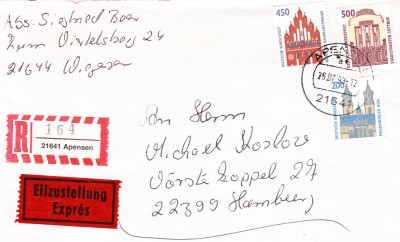 Abs. Siegmund Baer
Zum Dinkelsberg 24
21644 Wiegersen
450
500
200
DEUTSCHE BUNDESPOST
APENSEN
26.07.93-17
21641
R
164
21641 Apensen
Eilzustellung
Exprès
An Herrn
Michael Koslow
Vörste Koppel 27
22399 Hamburg